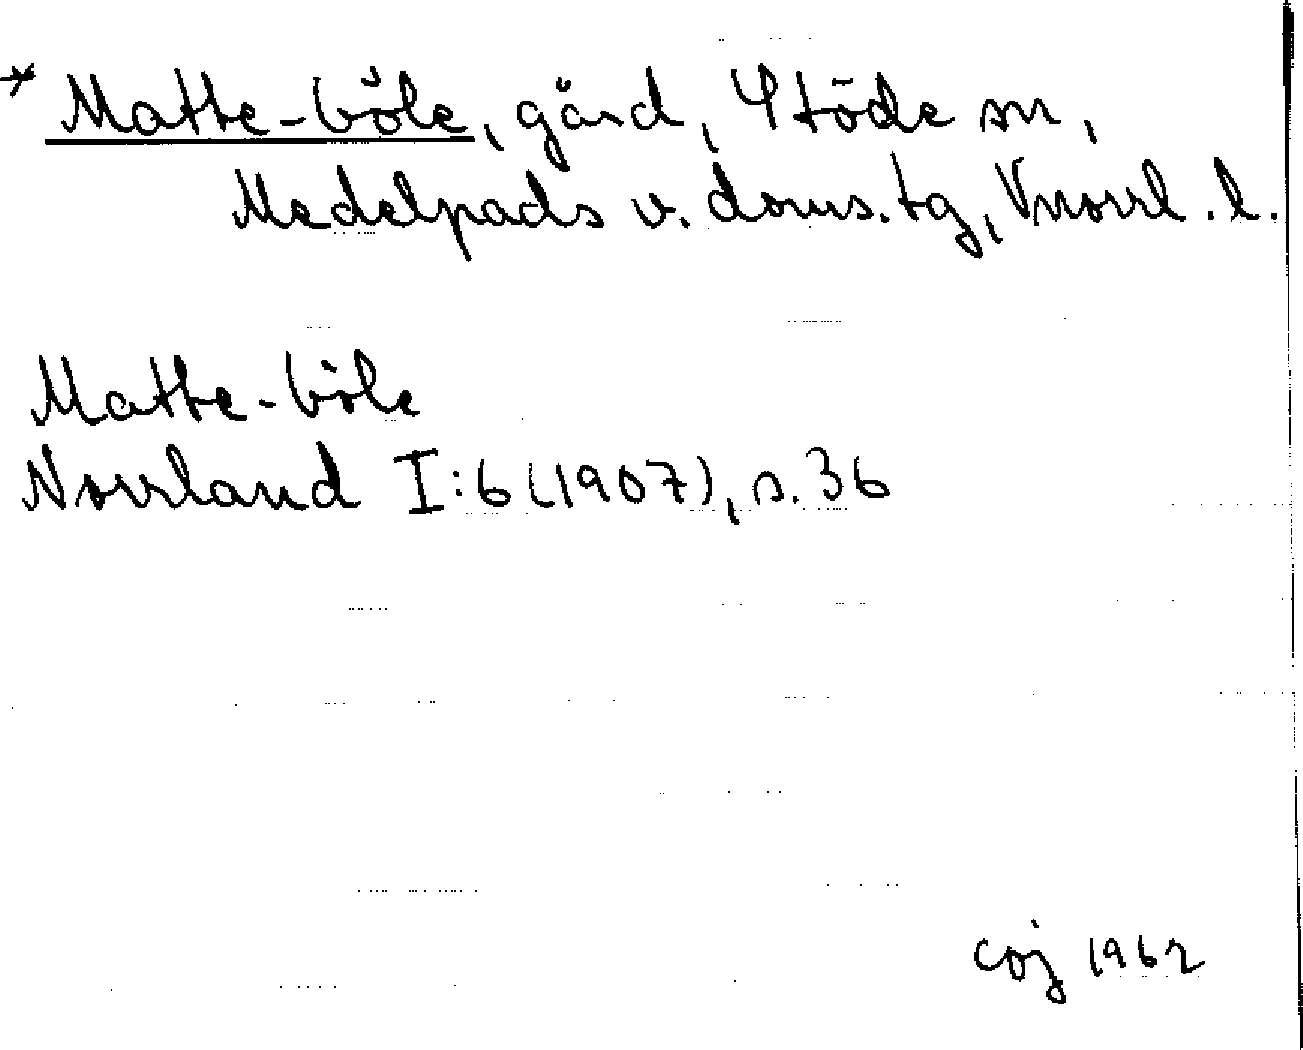 * Matte-böle, gård, Stöde sn,
Medelpads v. doms.tg, Vnorrl. l.
Matte-böle
Norrland I:6 (1907), s. 36
coj 1962